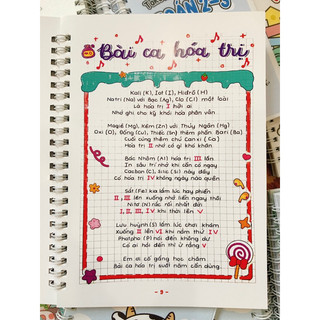 TOÁN 2-3
Bài ca hóa trị
Kali (K), Iot (I), Hiđrô (H)
Natri (Na) với Bạc (Ag), Clo (Cl) một loài
Là hóa trị I hỡi ai
Nhớ ghi cho kỹ khỏi hoài phân vân
Magiê (Mg), Kẽm (Zn) với Thủy Ngân (Hg)
Oxi (O), Đồng (Cu), Thiếc (Sn) thêm phần Bari (Ba)
Cuối cùng thêm chú Canxi (Ca)
Hóa trị II nhớ có gì khó khăn
Bác Nhôm (Al) hóa trị III lần
In sâu trí nhớ khi cần có ngay
Cacbon (C), Silic (Si) này đây
Có hóa trị IV không ngày nào quên
Sắt (Fe) kia lắm lúc hay phiền
II, III lên xuống nhớ liền ngay thôi
Nitơ (N) rắc rối nhất đời
I, II, III, IV khi thời lên V
Lưu huỳnh (S) lắm lúc chơi khăm
Xuống II lên VI khi nằm thứ IV
Photpho (P) nói đến không dư
Có ai hỏi đến thì ừ rằng V
Em ơi cố gắng học chăm
Bài ca hóa trị suốt năm cần dùng.
- 9 -